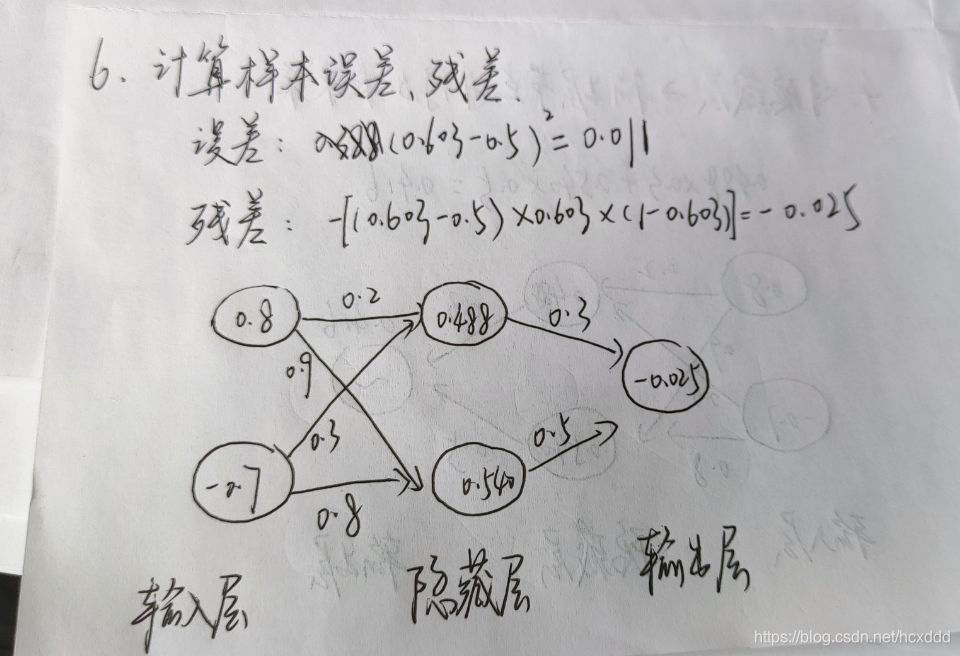 6. 计算样本误差、残差.
误差: (0.603-0.5)² = 0.011
残差: -[(0.603-0.5)×0.603×(1-0.603)]=-0.025
0.8 0.2 0.488 0.3
0.9 -0.025
-0.7 0.3 0.540 0.5
0.8
输入层 隐藏层 输出层
https://blog.csdn.net/hcxddd